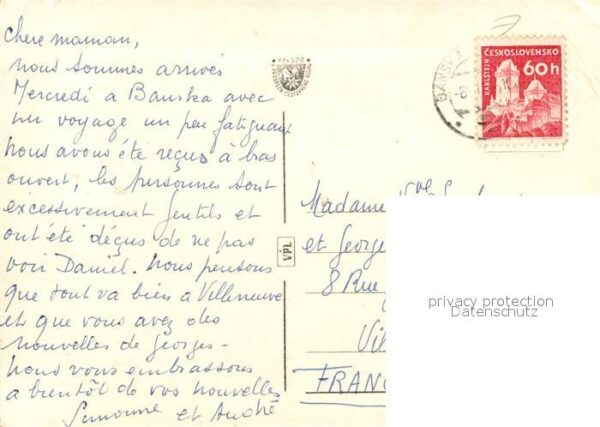 chere maman,
nous sommes arrivés
Mercredi a Banska avec
un voyage un peu fatiguant
nous avons été reçus à bras
ouvert, les personnes sont
excessivement gentils et
ont été déçus de ne pas
voir Daniel. nous pensons
que tout va bien à Villeneuve
et que vous avez des
nouvelles de Georges -
nous vous embrassons
a bientôt de vos nouvelles
Simonne et André
VPL
ČESKOSLOVENSKO
KARLŠTEJN
60h
Madame
et Georges
8 Rue
FRANC
privacy protection
Datenschutz